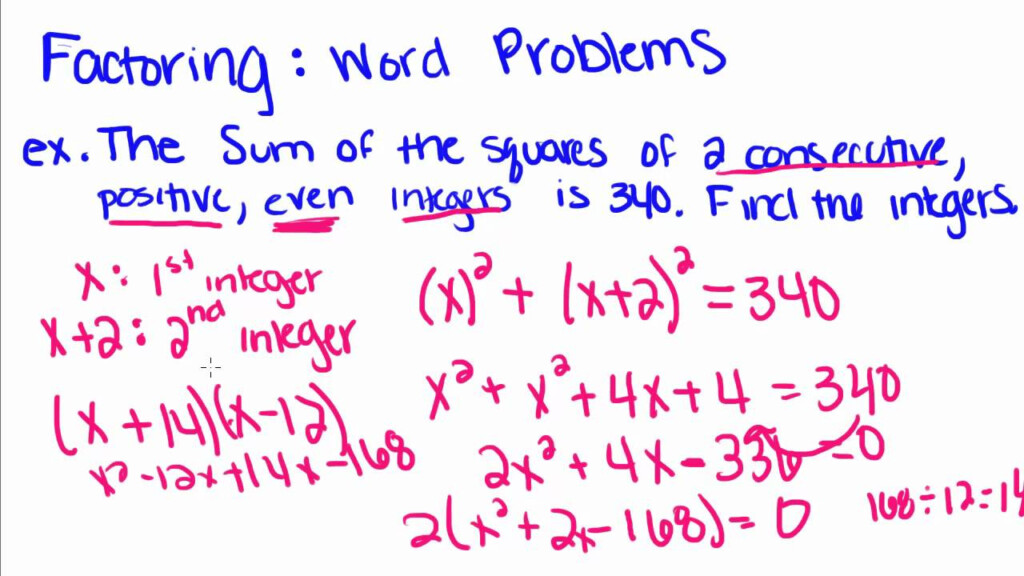 Factoring: Word Problems
ex. The Sum of the squares of 2 consecutive,
positive, even integers is 340. Find the integers.
x: 1st integer
x+2: 2nd integer
(x + 14)(x - 12)
x² - 12x + 14x - 168
(x)² + (x+2)² = 340
x² + x² + 4x + 4 = 340
2x² + 4x - 336 = 0
2(x² + 2x - 168) = 0
168 ÷ 12 = 14